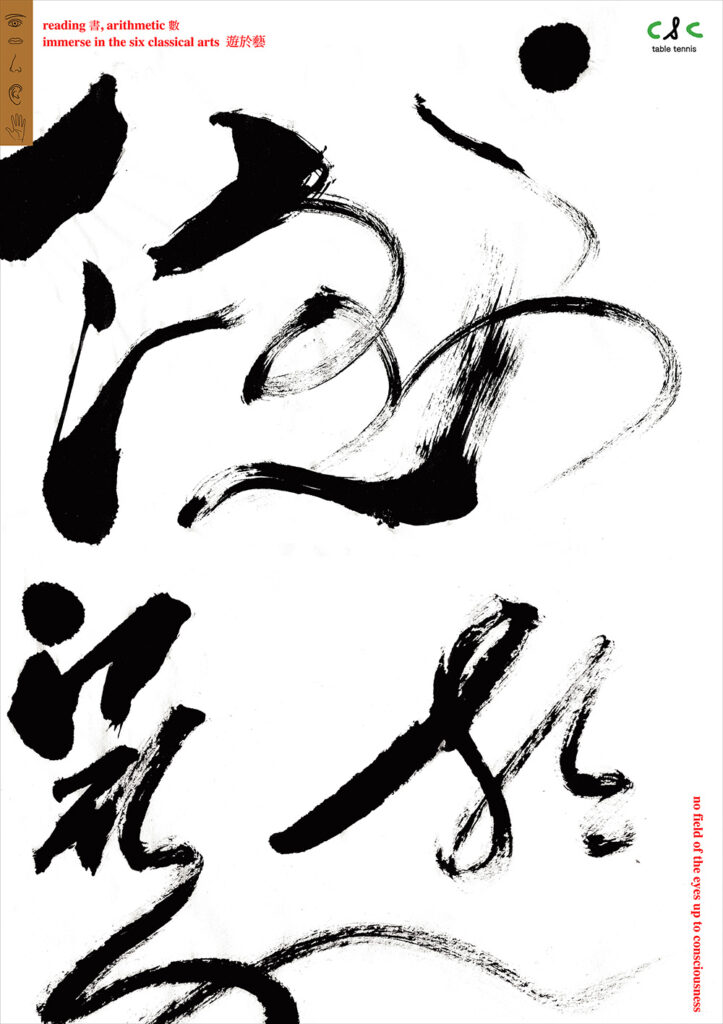 reading 書, arithmetic 數
immerse in the six classical arts 遊於藝
csc
table tennis
遊於藝
no field of the eyes up to consciousness